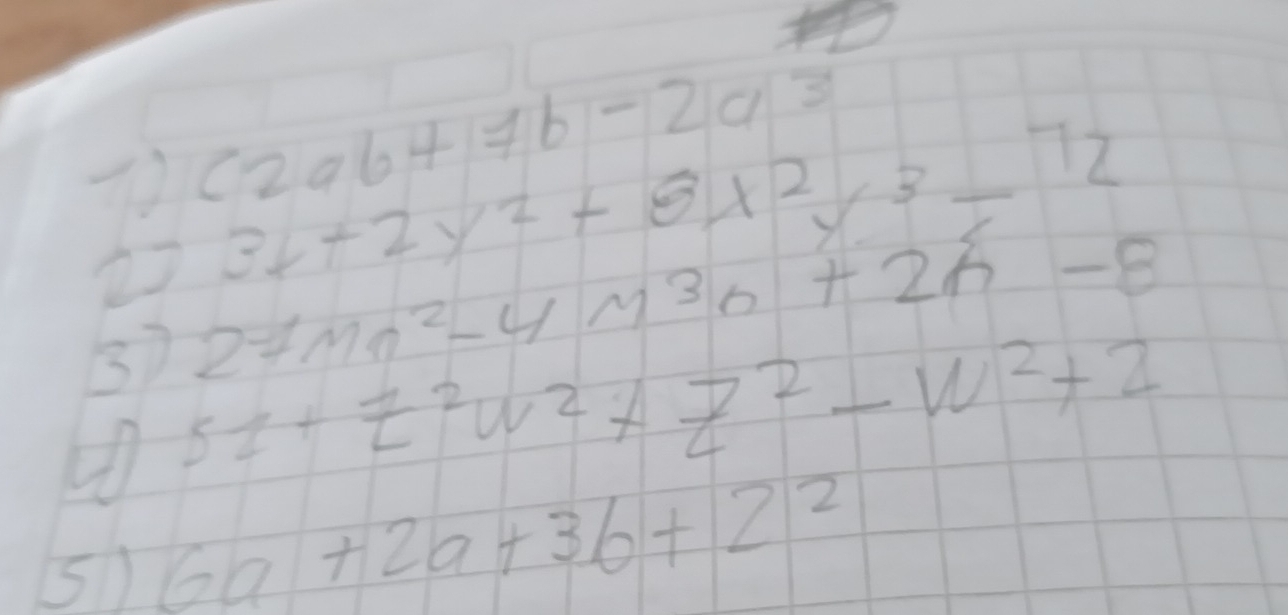 1) (2ab + 7b - 2a³
2) 3x + 2y² + 8x²y³ - 12
3) 27mn² - 4m³n + 2n - 8
4) 5z + z²w² + z² - w² + 2
5) 6a + 2a + 3b + 2²